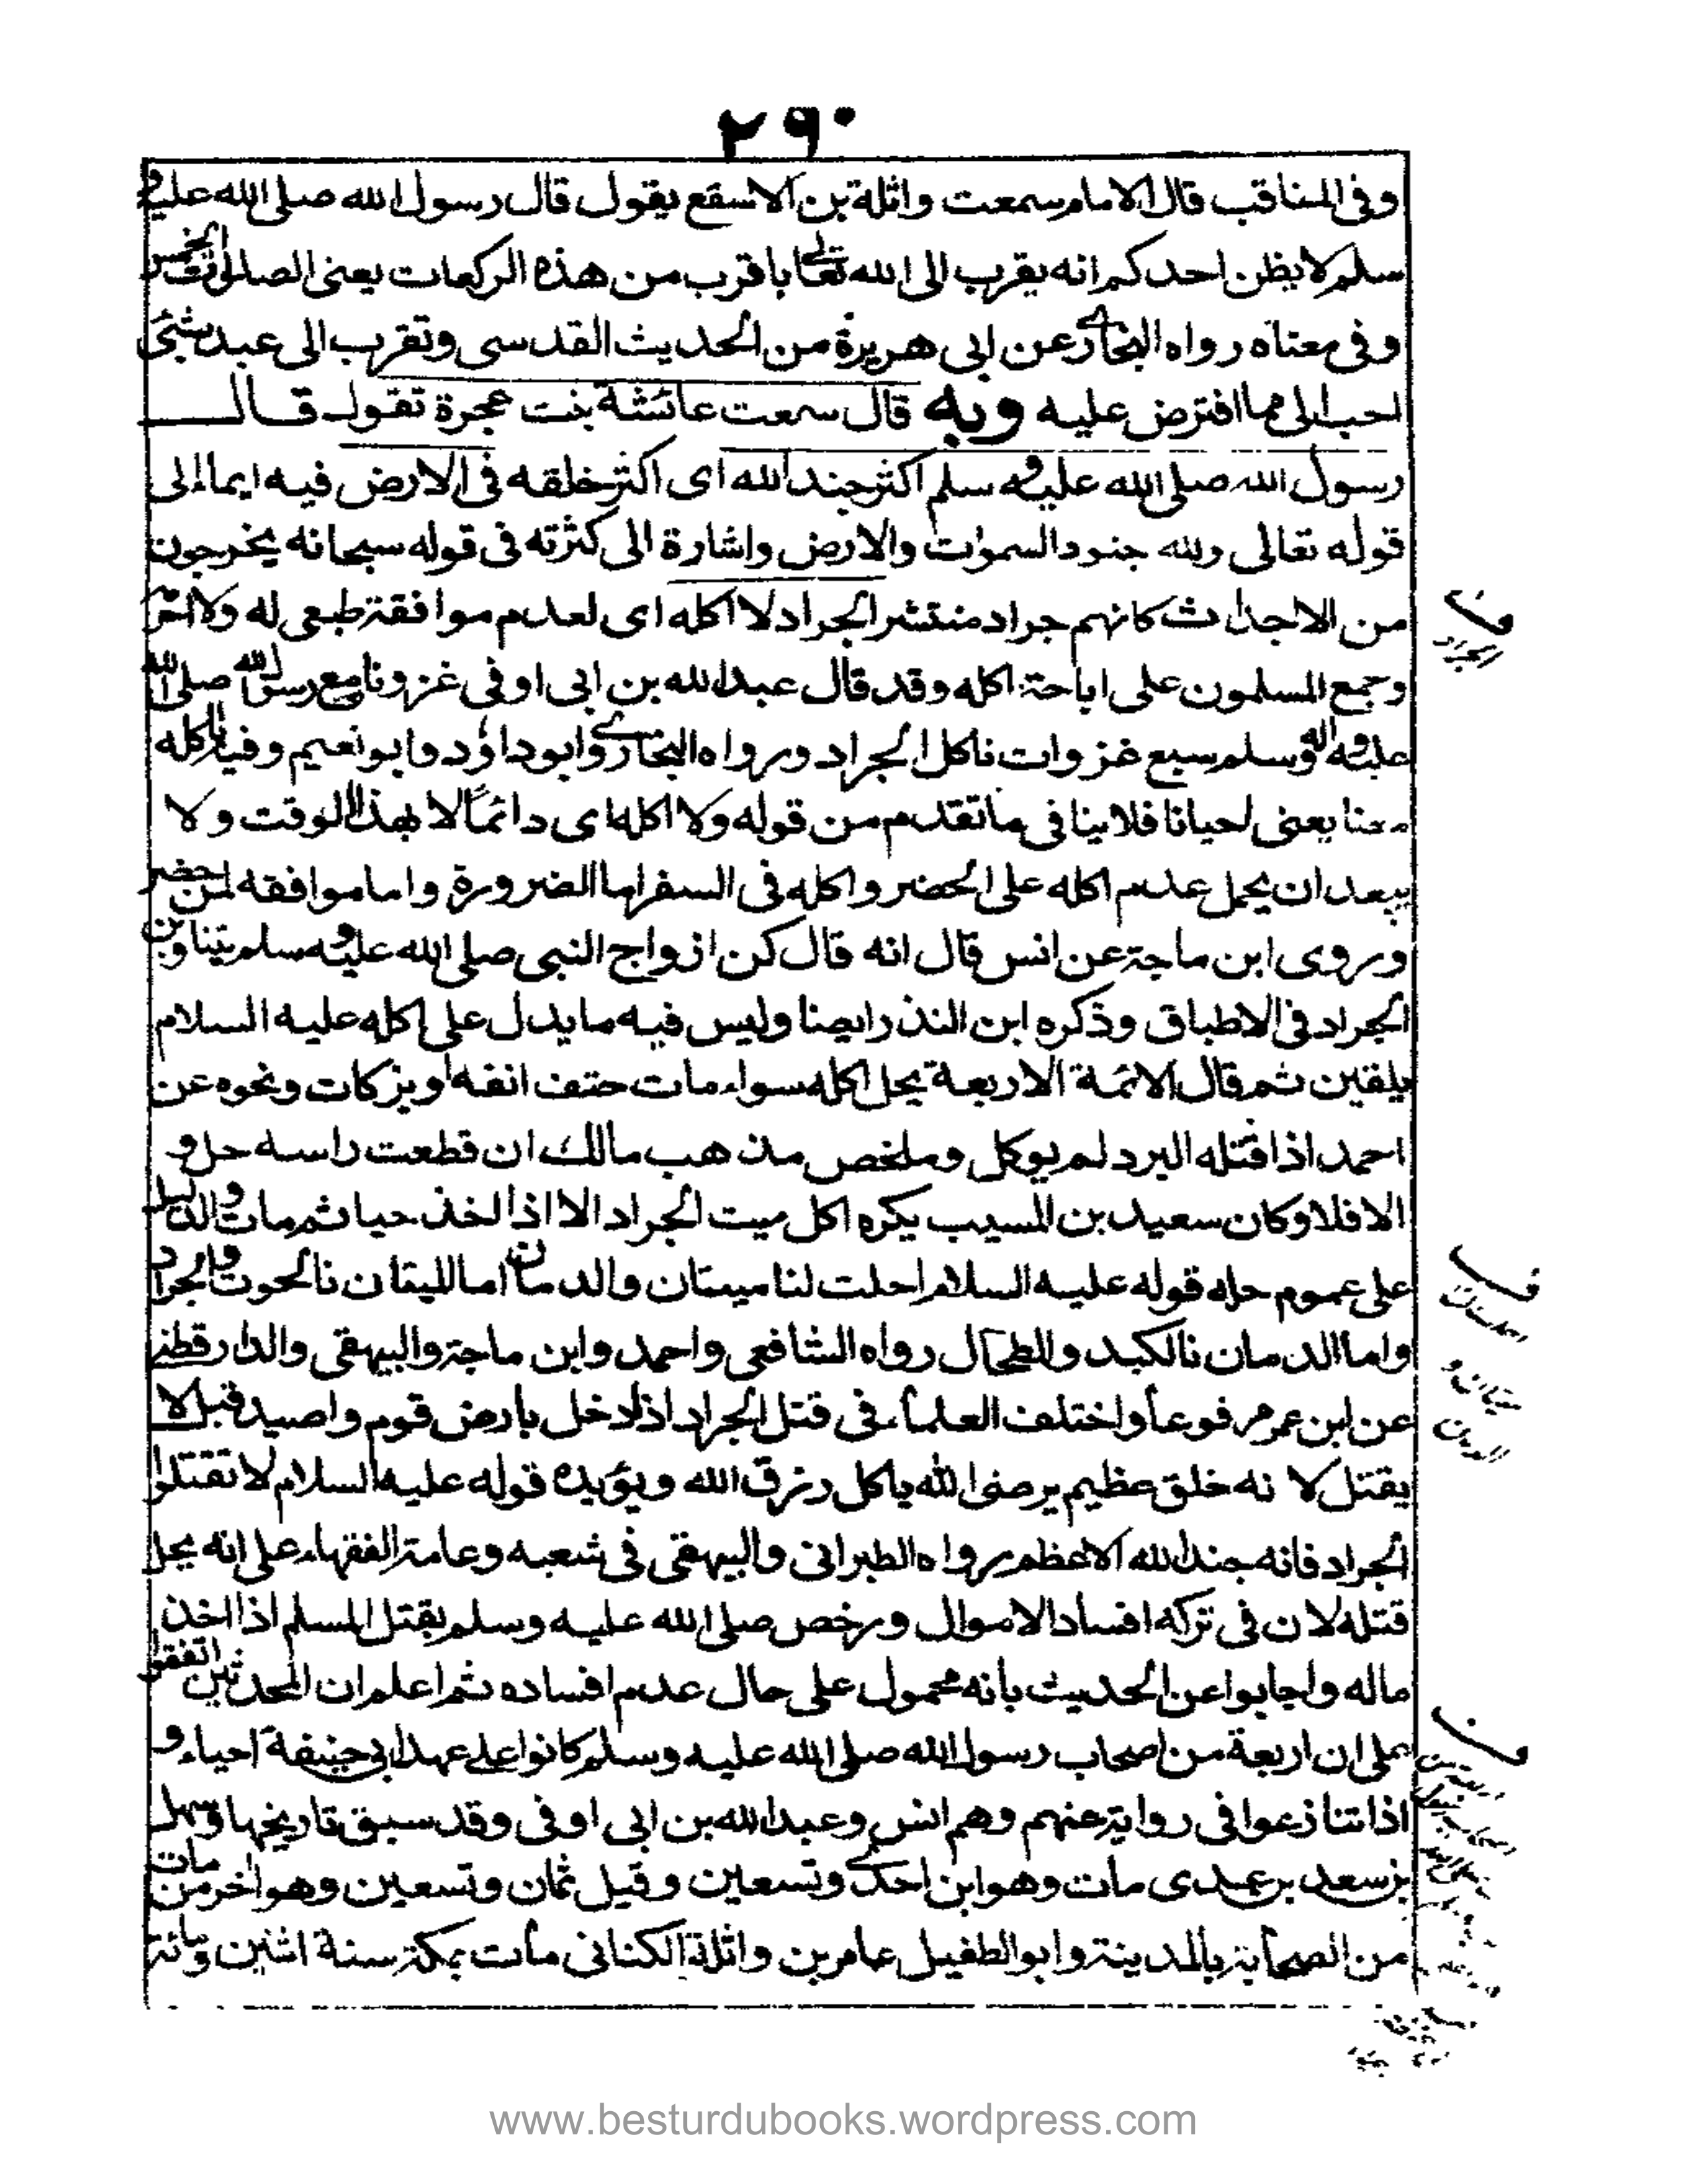 ٢٩٠
وفى المناقب قال الامام سمعت واثلة بن الاسقع يقول قال رسول الله صلى الله عليه و
سلم لا يظن احدكم انه يقرب الى الله تعالى باقرب من هذه الركعات يعنى الصلوات الخمس
وفى معناه رواه البخارى عن ابى هريرة من الحديث القدسى وتقرب الى عبد بشئ
احب الى مما افترض عليه وبه قال سمعت عائشة بنت عجرة تقول قال
رسول الله صلى الله عليه و سلم اكثر جند الله اى اكثر خلقه فى الارض فيه ايماء الى
قوله تعالى ولله جنود السموات والارض واشارة الى كثرته فى قوله سبحانه يخرجون
من الاجداث كانهم جراد منتشر الجراد لا اكله اى لعدم موافقة طبعى له ولا احرم
وجمع المسلمون على اباحة اكله وقد قال عبد الله بن ابى اوفى غزونا مع رسول الله صلى الله
عليه و اله وسلم سبع غزوات ناكل الجراد ورواه البخارى وابوداؤد وابونعيم وفيه ناكله
معنا يعنى احيانا فلا ينافى ما تقدم من قوله ولا اكله اى دائماً لا بهذا الوقت ولا
يبعد ان يحمل عدم اكله على الحضر واكله فى السفر اما الضرورة واما موافقه لمن حضر
وروى ابن ماجة عن انس قال انه قال كن ازواج النبى صلى الله عليه و سلم يتناوبن
الجراد فى الاطباق وذكره ابن المنذر ايضا وليس فيه ما يدل على اكله عليه السلام
بيقين ثم قال الائمة الاربعة يحل اكله سواء مات حتف انفه او بزكات ونحوه عن
احمد اذا قتله البرد لم يوكل وملخص مذهب مالك ان قطعت راسه حل و
الا فلا وكان سعيد بن المسيب يكره اكل ميت الجراد الا اذا اخذ حيا ثم مات والدليل
على عموم حله قوله عليه السلام احلت لنا ميتتان والدمان اما الميتان فالحوت والجراد
واما الدمان فالكبد والطحال رواه الشافعى واحمد وابن ماجة والبيهقى والدارقطنى
عن ابن عمر مرفوعاً واختلف العلماء فى قتل الجراد اذا دخل بارض قوم واصيد قبل لا
يقتل لا نه خلق عظيم يرضى الله ياكل رزق الله ويؤيده قوله عليه السلام لا تقتلوا
الجراد فانه جند الله الاعظم رواه الطبرانى والبيهقى فى شعبه وعامة الفقهاء على انه يحل
قتله لان فى تركه افساد الاموال ورخص صلى الله عليه وسلم بقتل المسلم اذا اخذ
ماله واجابوا عن الحديث بانه محمول على حال عدم افساده ثم اعلم ان المحدثين اتفقوا
على ان اربعة من اصحاب رسول الله صلى الله عليه وسلم كانوا على عهد ابى حنيفة احياء و
اذا تنازعوا فى رواية عنهم وهم انس وعبد الله بن ابى اوفى وقد سبق تاريخها وسهل
بن سعد مات وهو ابن احدى وتسعين وقيل ثمان وتسعين وهو اخر من مات
من الصحابة بالمدينة وابو الطفيل عامر بن واثلة الكنانى مات بمكة سنة اثنين ومائة
ف الجراد
www.besturdubooks.wordpress.com